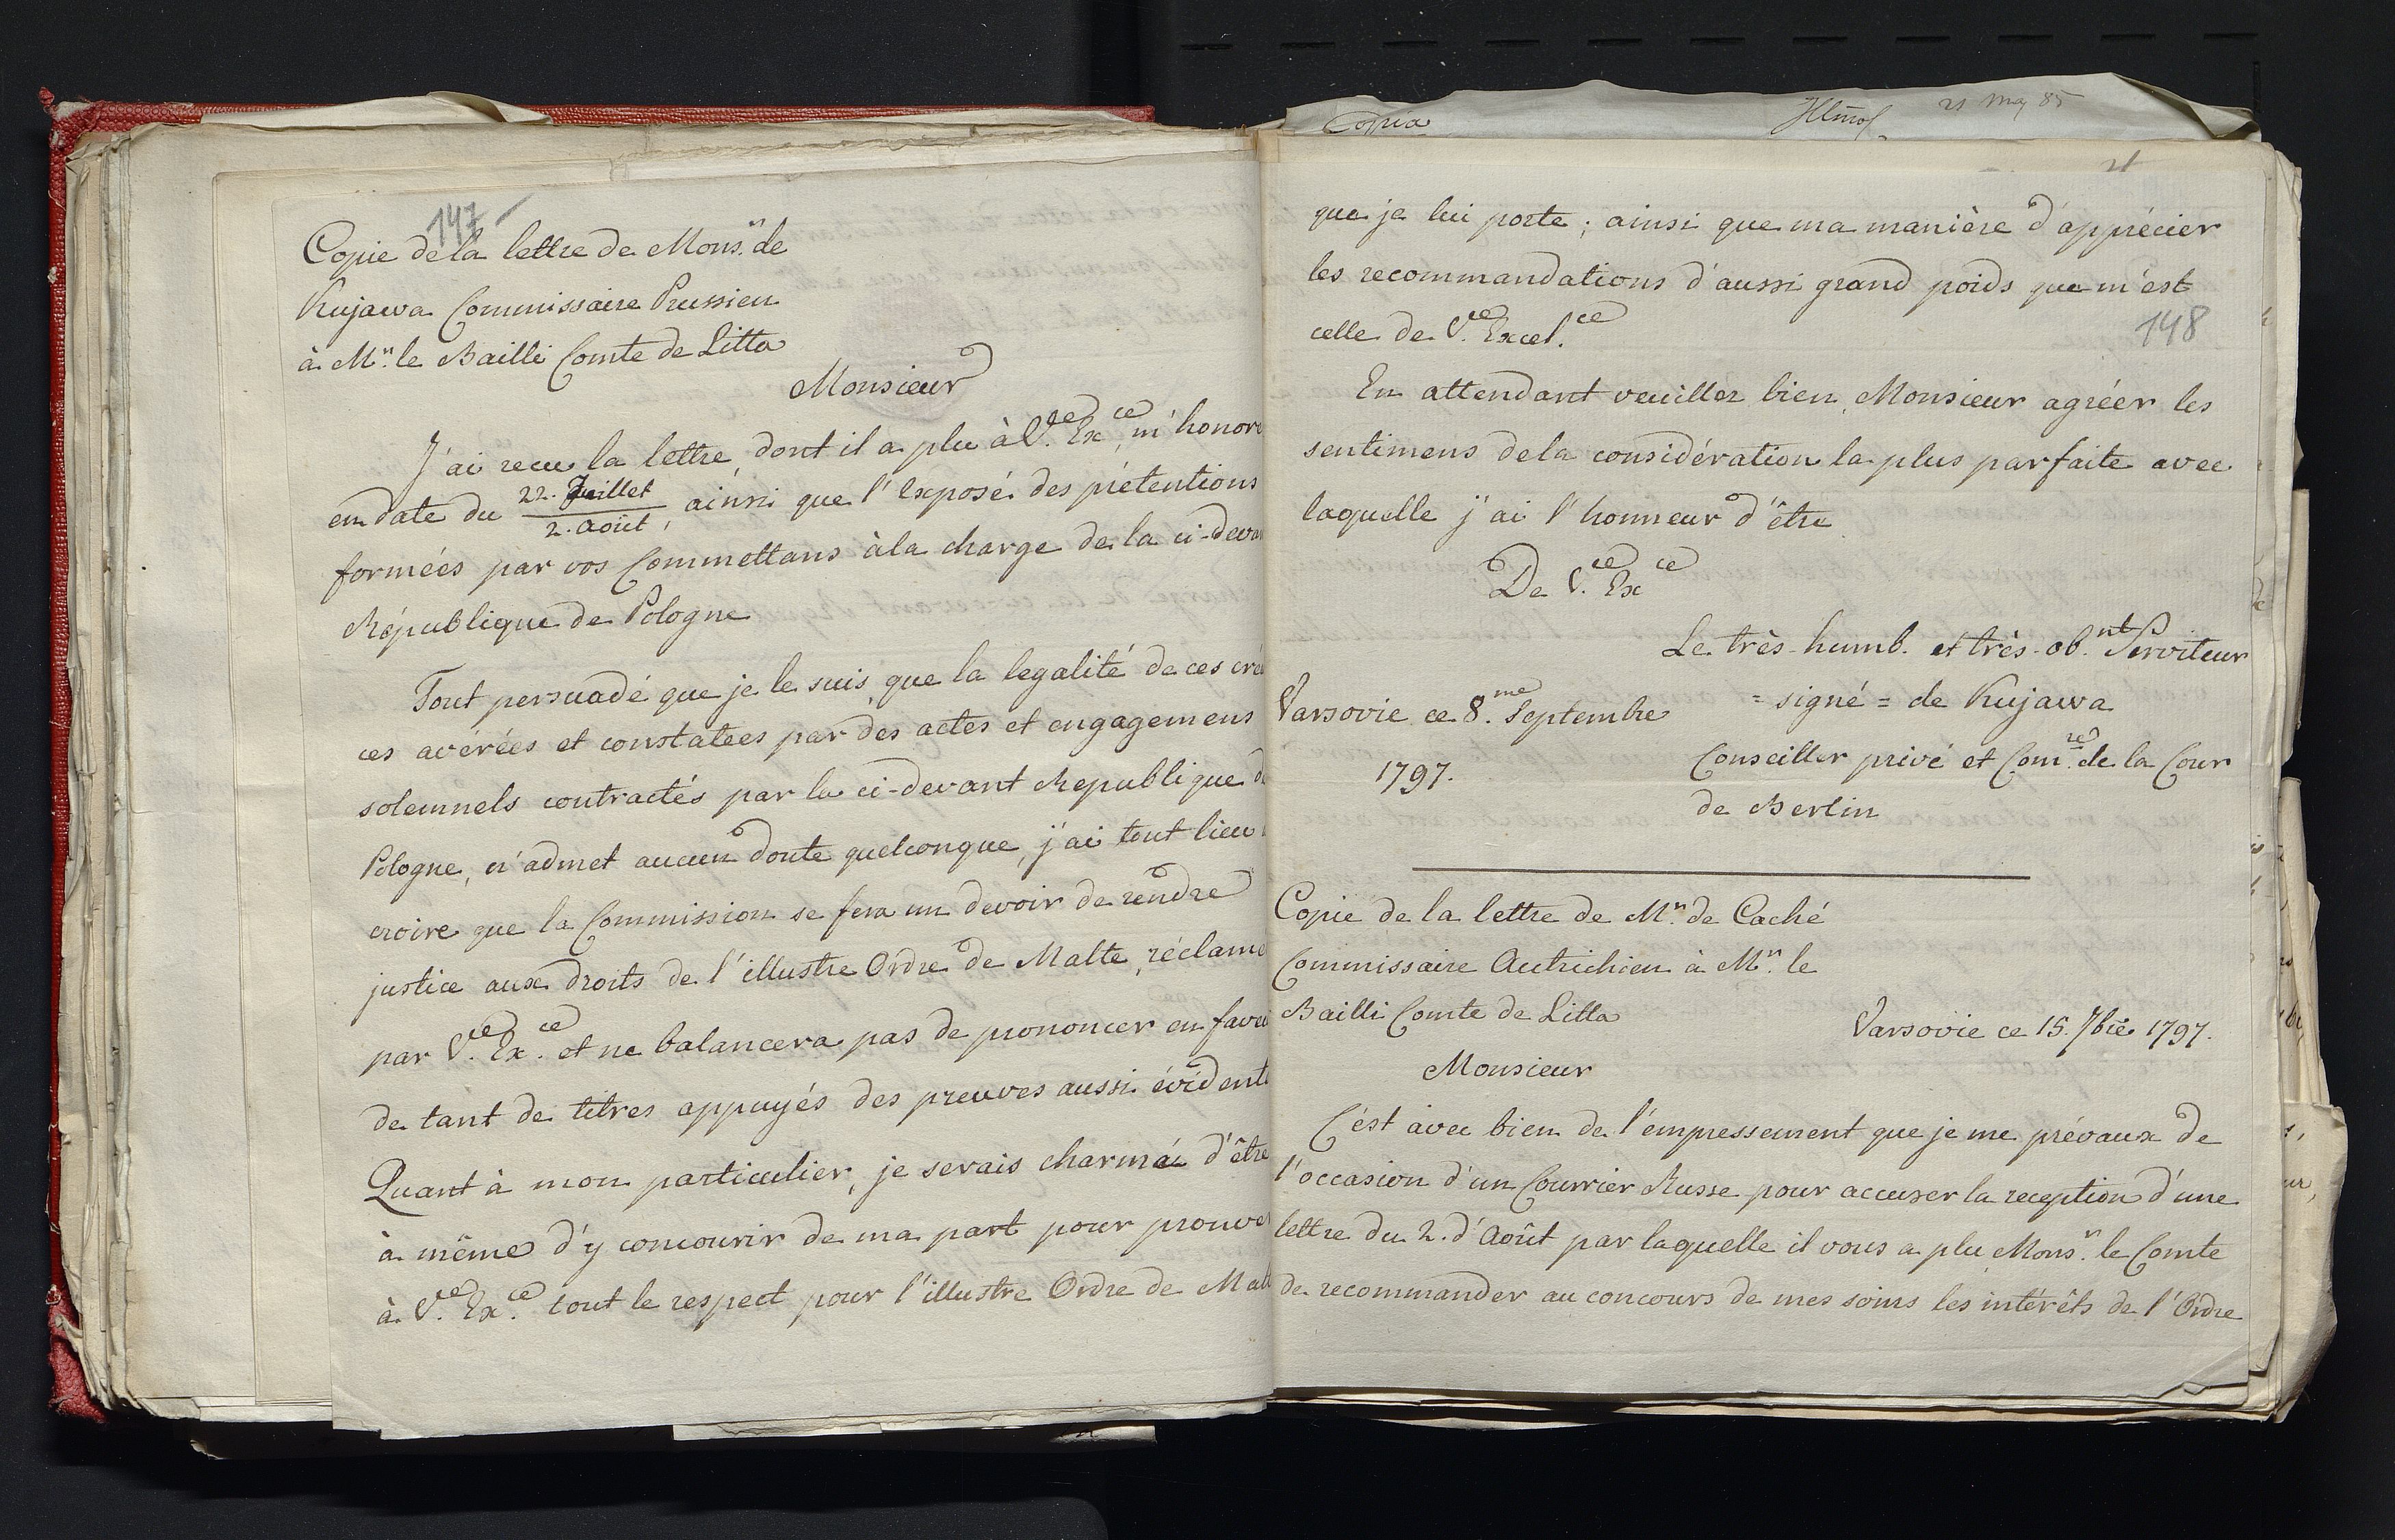 147
Copie de la lettre de Mons.r de
Kujawa Commissaire Prussien
à M.r le Bailli Comte de Litta
Monsieur
J'ai recu la lettre, dont il a plu à V.e Ex.ce m'honore
en date du 22. Juillet / 2. août, ainsi que l'Exposé des prétentions
formées par vos Commettans à la charge de la ci-deva
République de Pologne
Tout persuadé que je le suis, que la legalité de ces cré
ces avérées et constatees par des actes et engagemens
solemnels contractés par la ci-devant Republique d
Pologne, n'admet aucun doute quelconque, j'ai tout lieu
croire que la Commission se fera un devoir de rendre
justice aux droits de l'illustre Ordre de Malte, réclame
par V.ce Ex.ce et ne balancera pas de prononcer en fave
de tant de titres appuyés des preuves aussi évident
Quant à mon particulier, je serais charmé d'être
à même d'y concourir de ma part pour prouve
à V.e Ex.ce tout le respect pour l'illustre Ordre de Mal
Copia
21 Mag 85
21
que je lui porte; ainsi que ma manière d'apprécier
les recommandations d'aussi grand poids que m'est
celle de V.ce Excel.ce
148
En attendant veuillez bien, Monsieur agréer les
sentimens de la considération la plus parfaite avec
laquelle j'ai l'honneur d'être
De V.ce Ex.ce
Le très-humb. et très-ob.nt Serviteur
Varsovie ce 8.me Septembre
= signé = de Kujawa
1797.
Conseiller privé et Com.re de la Cour
de Berlin
Copie de la lettre de M.r de Caché
Commissaire Autrichien à M.r le
Bailli Comte de Litta
Varsovie ce 15. 7bre 1797.
Monsieur
C'ést avec bien de l'émpressement que je me prévaux de
l'occasion d'un Courrier Russe pour accuser la reception d'une
lettre du 2. d'Août par laquelle il vous a plu Mons.r le Comte
de recommander au concours de mes soins les intérêts de l'Ordre